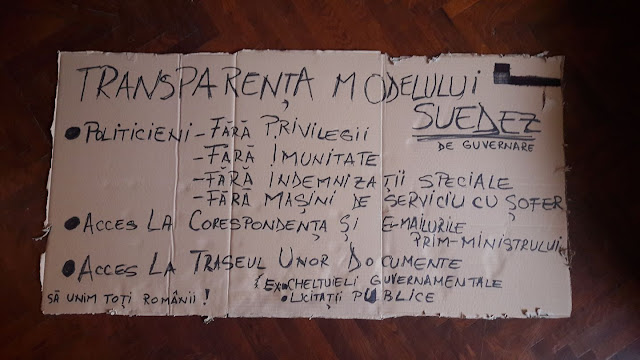 TRANSPARENȚA MODELULUI
SUEDEZ
DE GUVERNARE
● POLITICIENI - FĂRĂ PRIVILEGII
- FĂRĂ IMUNITATE
- FĂRĂ INDEMNIZAȚII SPECIALE
- FĂRĂ MAȘINI DE SERVICIU CU ȘOFER
● ACCES LA CORESPONDENȚA ȘI E-MAILURILE
PRIM-MINISTRULUI
● ACCES LA TRASEUL UNOR DOCUMENTE
EX ● CHELTUIELI GUVERNAMENTALE
● LICITAȚII PUBLICE
SĂ UNIM TOȚI ROMÂNII!